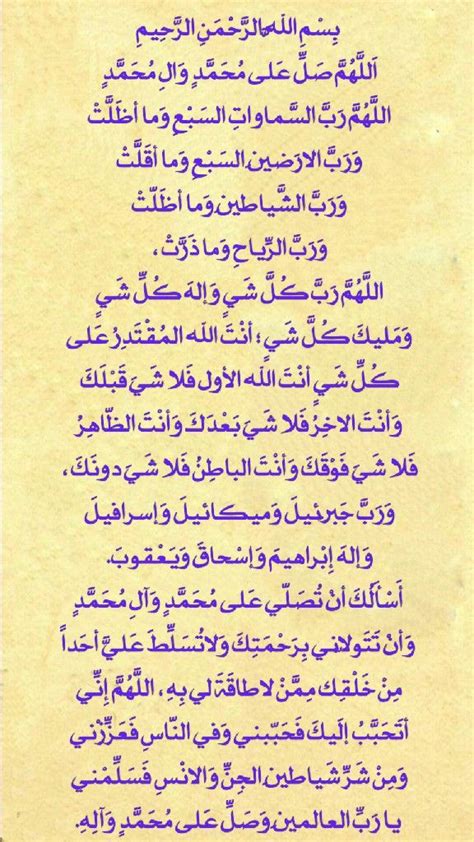 بِسْمِ اللَهِ الرَّحْمَنِ الرَّحِيمِ
اَللَّهُمَّ صَلِّ عَلى مُحَمَّدٍ وَالِ مُحَمَّدٍ
اللَّهُمَّ رَبَّ السَّماواتِ السَبْعِ وَما أظَلَّتْ
وَرَبَّ الارَضينِ السَبْعِ وَما أقَلَّتْ
وَرَبَّ الشَّياطينِ وَما أظَلّتْ
وَرَبَّ الرِّياحِ وَما ذَرَّتْ،
اللَّهُمَّ رَبَّ كُلَّ شَيٍ وَإلهَ كُلِّ شَيٍ
وَمَليكَ كُلَّ شَيٍ؛ أنْتَ اللَه المُقْتَدِرُ عَلى
كُلِّ شَيٍ أنْتَ اللَه الأول فَلا شَيَ قَبْلَكَ
وَأنْتَ الاخِرُ فَلا شَيَ بَعْدَكَ وَأنْتَ الظّاهِرُ
فَلا شَيَ فَوْقَكَ وَأنْتَ الباطِنُ فَلا شَيَ دونَكَ،
وَرَبَّ جَبرئيلَ وَميكائيلَ وَإسرافيلَ
وَإلهَ إبْراهيمَ وَإسْحاقَ وَيَعْقوبَ.
أَسْأَلُكَ أنْ تُصَلّي عَلى مُحَمَّدٍ وَآلِ مُحَمَّدٍ
وَأنْ تَتَولاني بِرَحْمَتِكَ وَلاتُسَلِّطَ عَليَّ أحَداً
مِنْ خَلْقِكَ مِمَّنْ لاطاقَةَ لي بِهِ، اللَّهُمَّ إنِّي
أتَحَبَّبُ إلَيكَ فَحَبّبني وَفي النّاسِ فَعَزِّزْني
وَمِنْ شَرِّ شَياطينِ الجِنِّ وَالانْسِ فَسَلِّمْني
يا رَبِّ العالمينِ وَصَلِّ عَلى مُحَمَّدٍ وَآلِهِ.